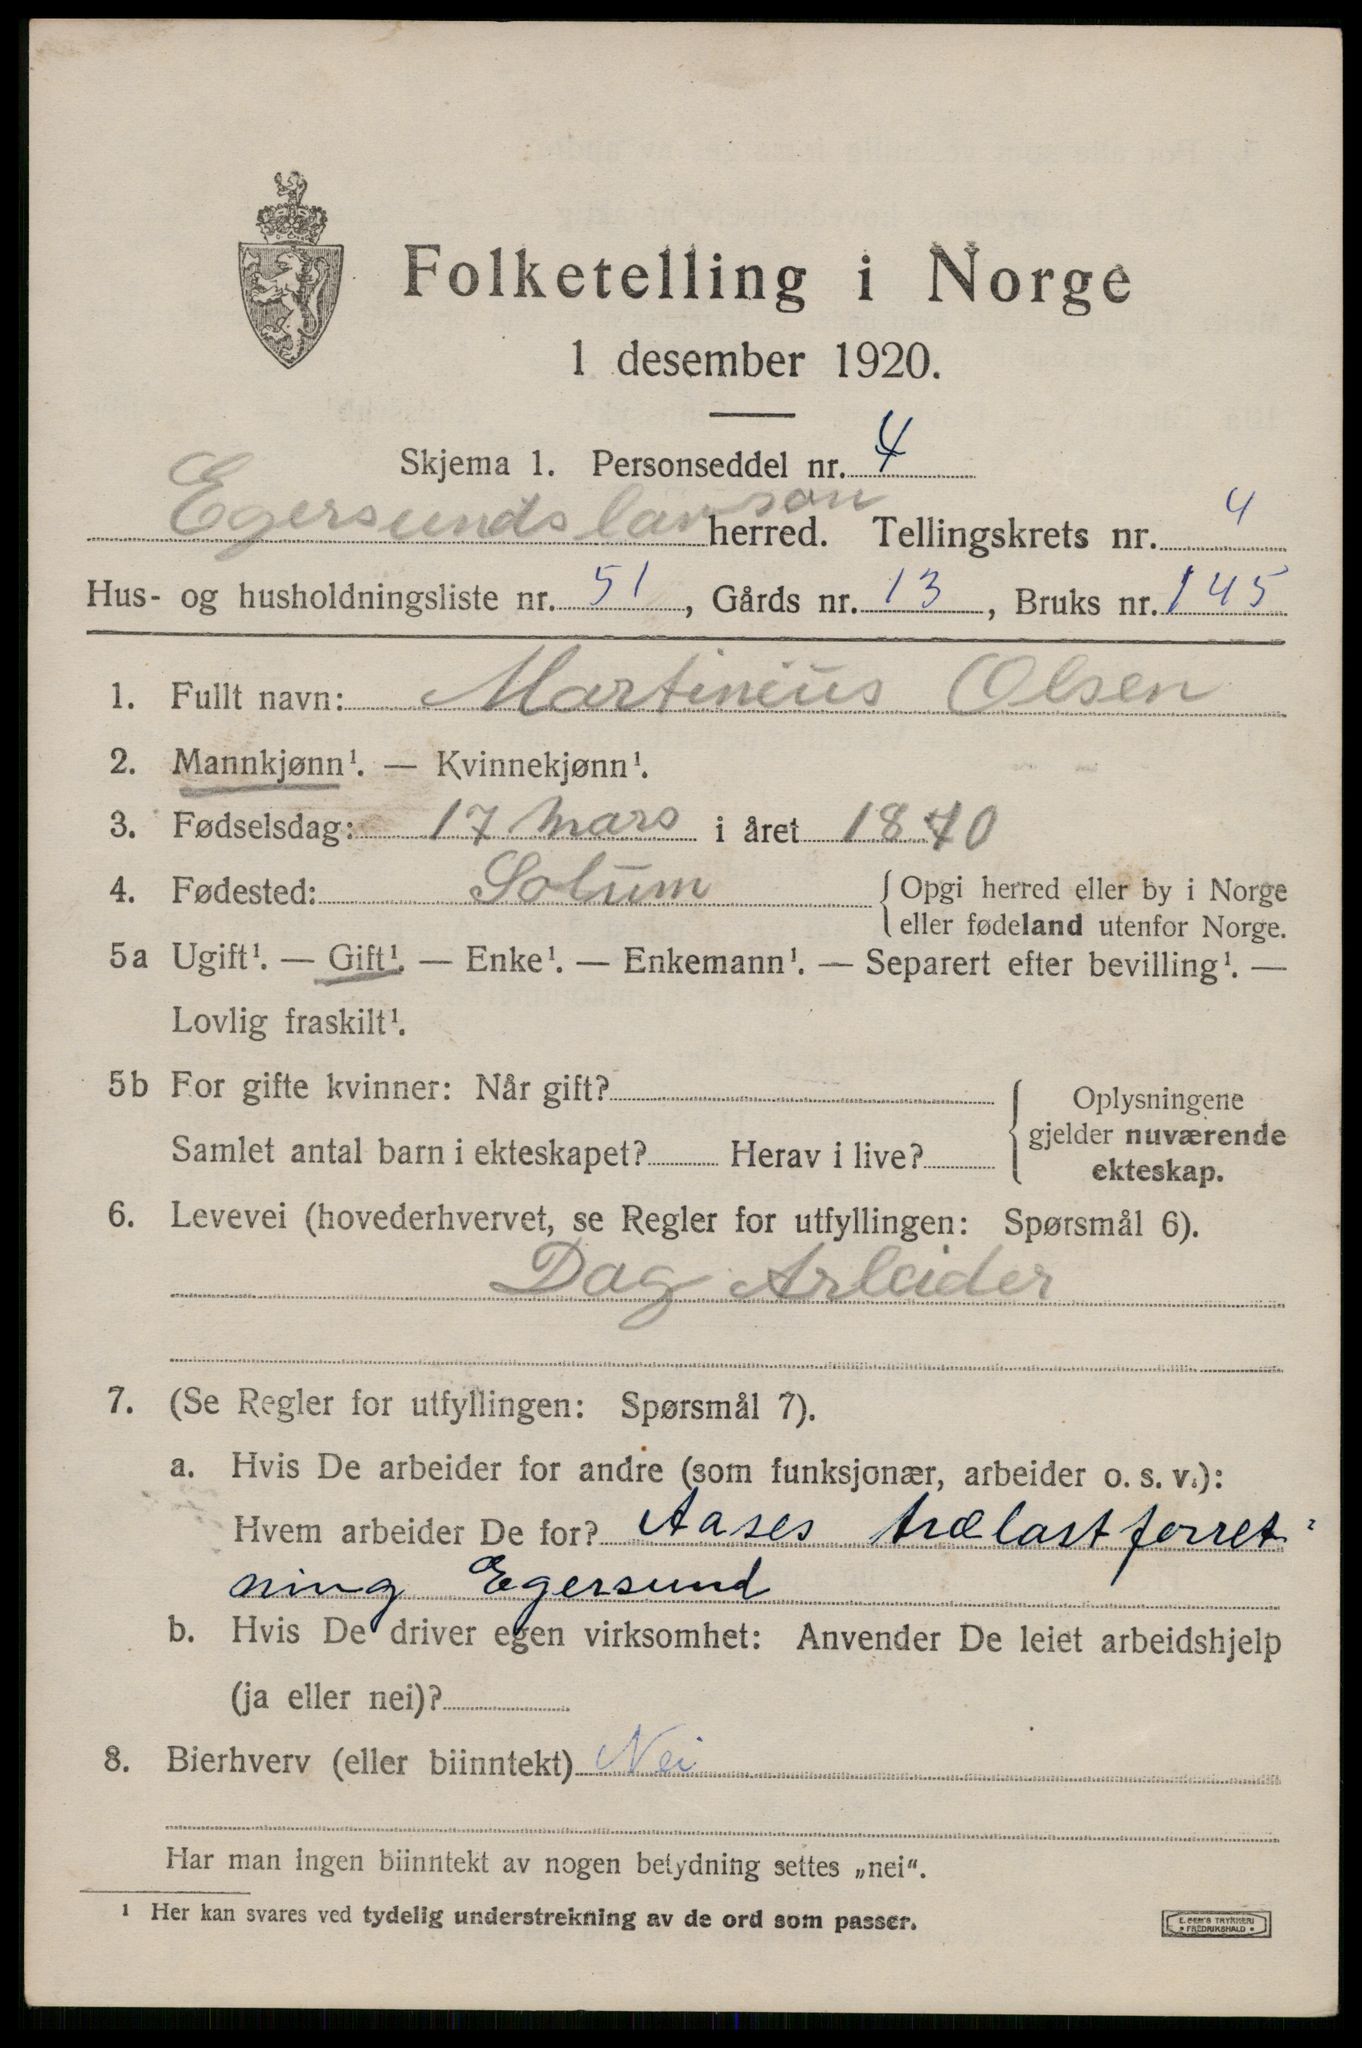 Folketelling i Norge
1 desember 1920.
Skjema 1. Personseddel nr. 4
Egersunds landsogn herred. Tellingskrets nr. 4
Hus- og husholdningsliste nr. 51, Gårds nr. 13, Bruks nr. 145
1. Fullt navn: Martinius Olsen
2. Mannkjønn¹. — Kvinnekjønn¹.
3. Fødselsdag: 17 Mars i året 1870
4. Fødested: Solum { Opgi herred eller by i Norge
eller fødeland utenfor Norge.
5a Ugift¹. — Gift¹. — Enke¹. — Enkemann¹. — Separert efter bevilling¹. —
Lovlig fraskilt¹.
5b For gifte kvinner: Når gift?
Samlet antal barn i ekteskapet? Herav i live?
{ Oplysningene
gjelder nuværende
ekteskap.
6. Levevei (hovederhvervet, se Regler for utfyllingen: Spørsmål 6).
Dag Arbeider
7. (Se Regler for utfyllingen: Spørsmål 7).
a. Hvis De arbeider for andre (som funksjonær, arbeider o. s. v.):
Hvem arbeider De for? Aases trælastforret-
ning Egersund
b. Hvis De driver egen virksomhet: Anvender De leiet arbeidshjelp
(ja eller nei)?
8. Bierhverv (eller biinntekt) Nei
Har man ingen biinntekt av nogen betydning settes „nei“.
¹ Her kan svares ved tydelig understrekning av de ord som passer.
E. SEM'S TRYKKERI
FREDRIKSHALD